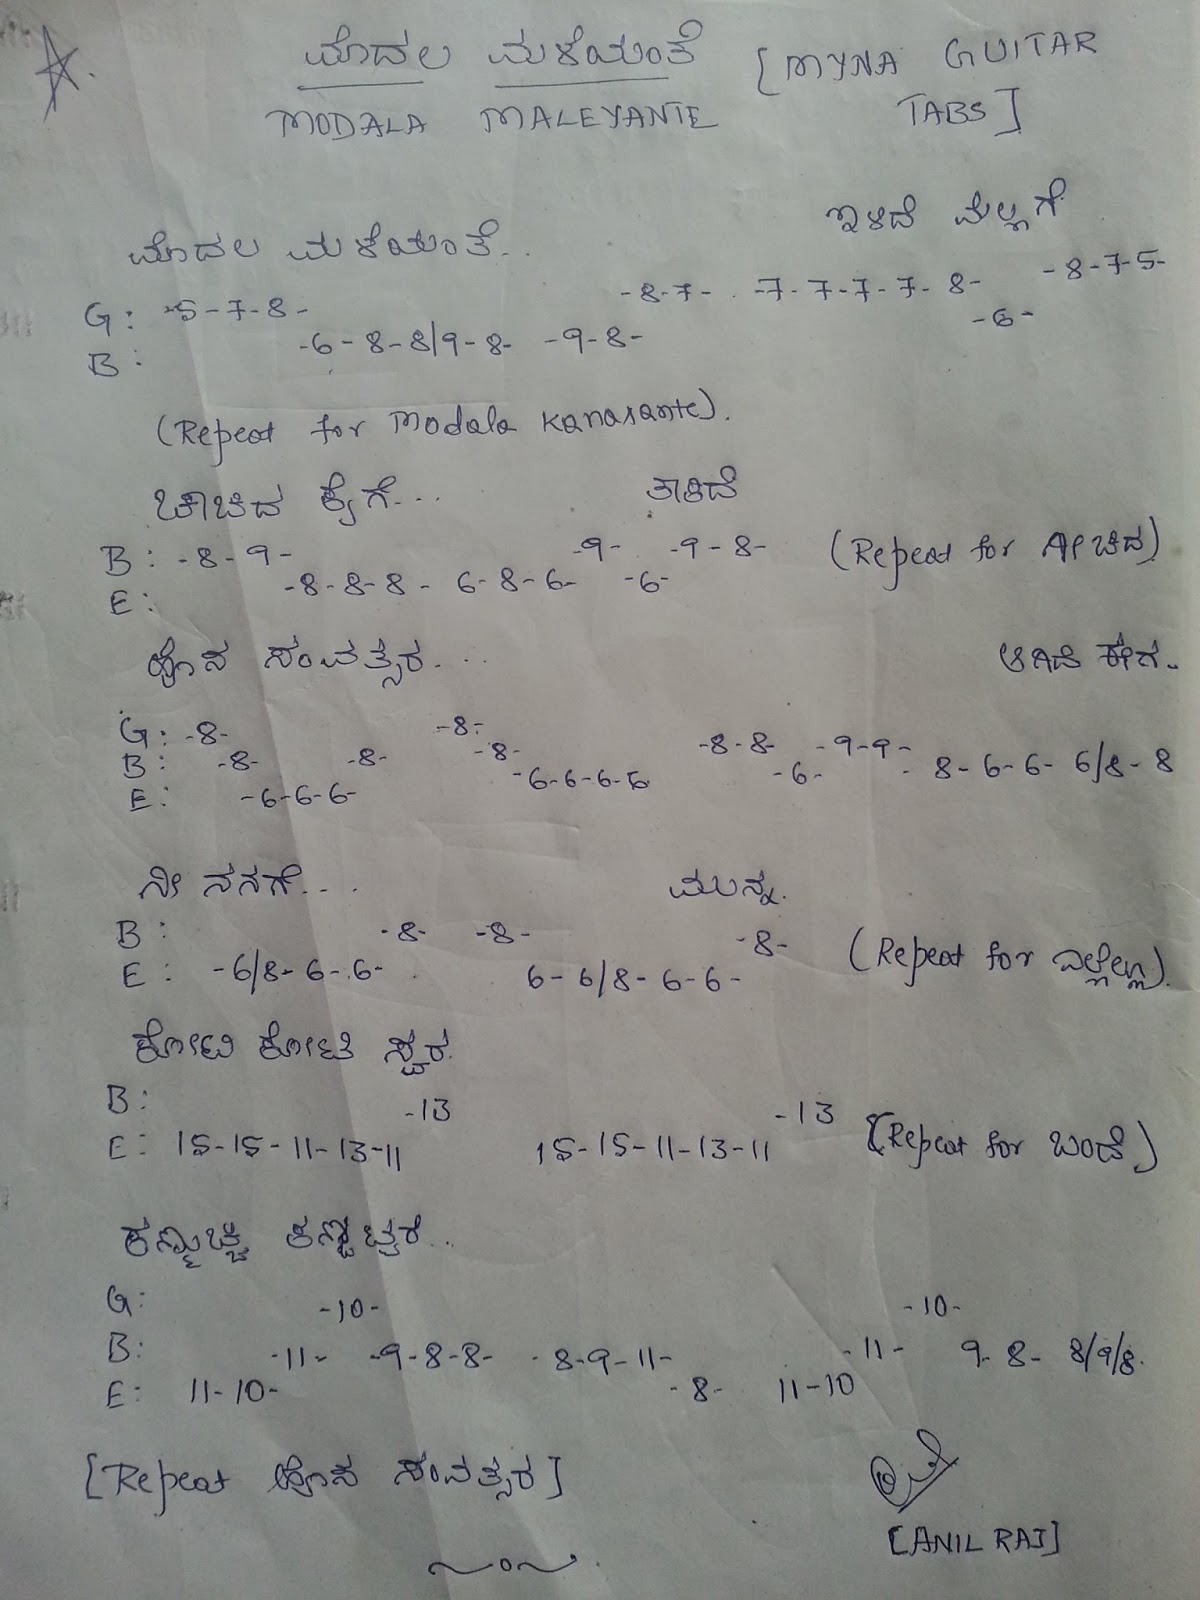 ಮೊದಲ ಮಳೆಯಂತೆ [MYNA GUITAR
MODALA MALEYANTE TABS]
ಮೊದಲ ಮಳೆಯಂತೆ.. ಇಳಿದೆ ಮೆಲ್ಲಗೆ
G: -5-7-8- -8-7- -7-7-7-7-8- -8-7-5-
B: -6-8-8/9-8- -9-8- -6-
(Repeat for Modala Kanasante).
ಚಾಚಿದ ಕೈಗೆ... ತಾಕಿದೆ
B: -8-9- -9- -9-8- (Repeat for ನಾಚಿದ)
E: -8-8-8- 6-8-6- -6-
ಹೊಸ ಸಂವತ್ಸರ.... ಆಗಿದೆ ಈಗ..
G: -8- -8-
B: -8- -8- -8- -8-8- -9-9-
E: -6-6-6- -6-6-6-6 -6- 8-6-6- 6/8-8
ನೀ ನನಗೆ.... ಮುನ್ನ.
B: -8- -8- -8-
E: -6/8-6-6- 6-6/8-6-6- (Repeat for ಎಲ್ಲೆಲ್ಲ).
ಕೋಟಿ ಕೋಟಿ ಸ್ವರ.
B: -13 -13
E: 15-15-11-13-11 15-15-11-13-11 (Repeat for ಬಂದೆ)
G: -10- -10-
B: -11- -9-8-8- -8-9-11- -11- 9-8- 8/9/8.
E: 11-10- -8- 11-10
[Repeat ಹೊಸ ಸಂವತ್ಸರ]
[ANIL RAJ]